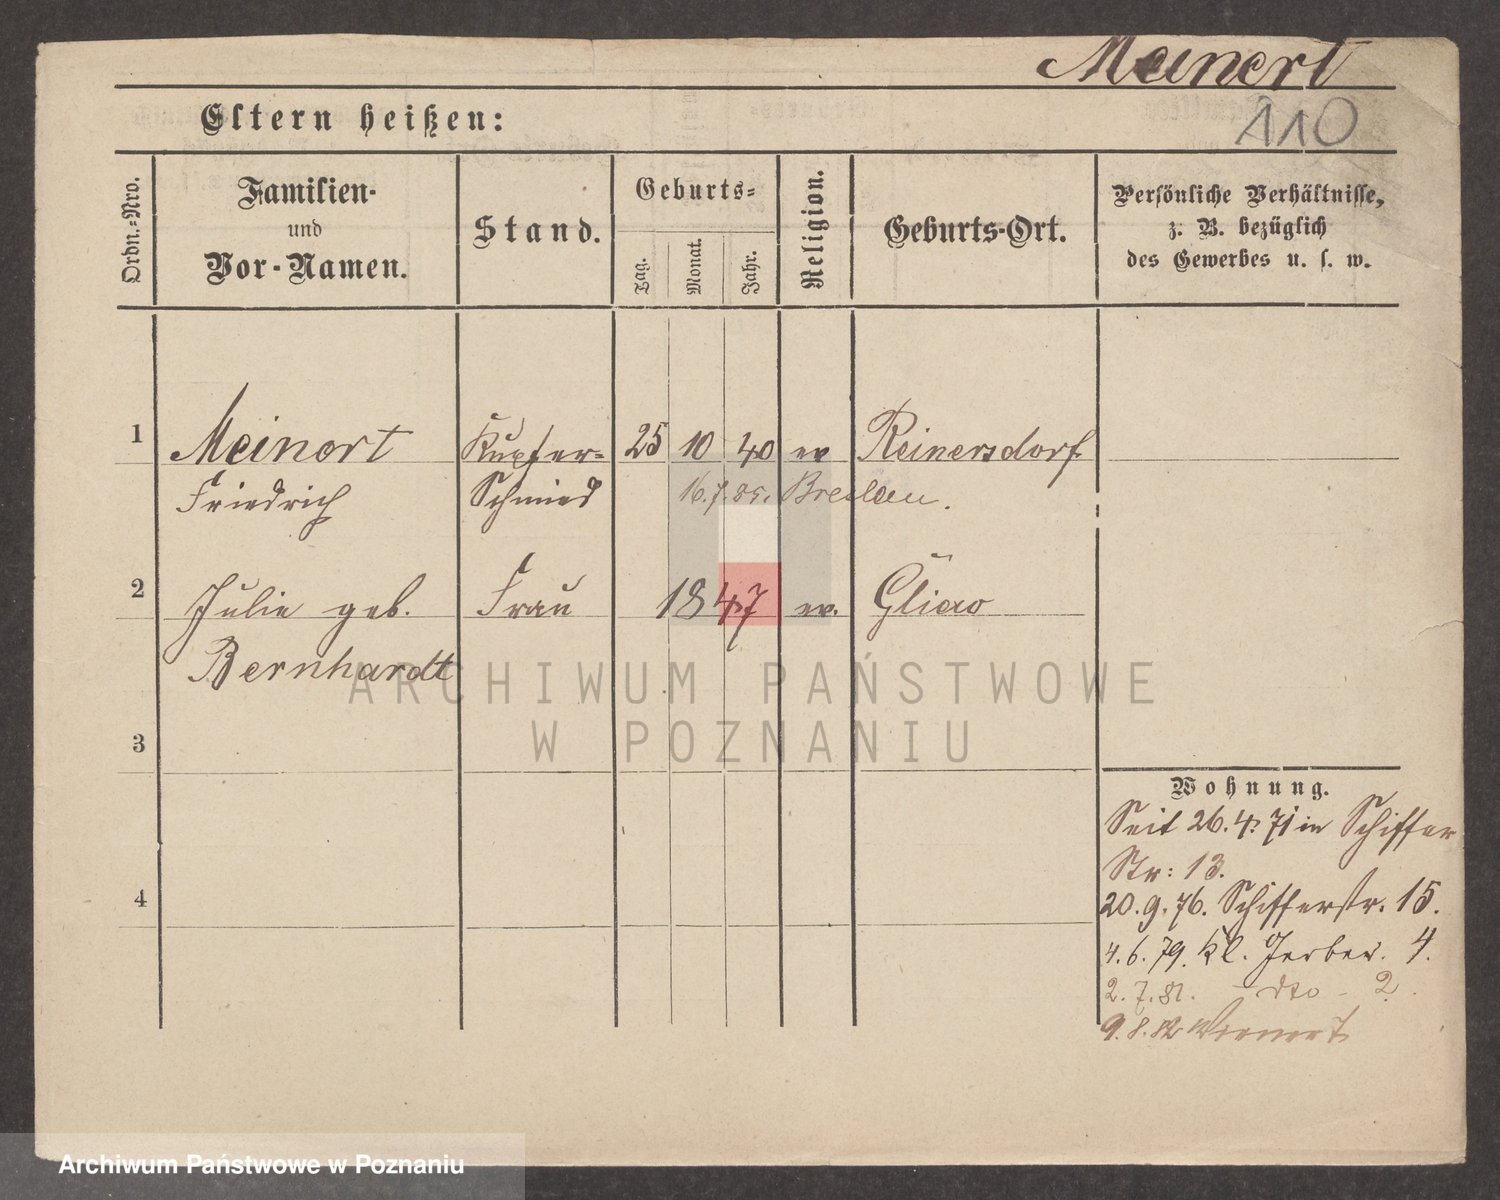 Meinert
110
Eltern heißen:
Ordn.-Nro.
Familien-
und
Vor-Namen.
Stand.
Geburts-
Tag.
Monat.
Jahr.
Religion.
Geburts-Ort.
Persönliche Verhältnisse,
z. B. bezüglich
des Gewerbes u. s. w.
1 Meinert Kupfer- 25 10 40 ev Reinersdorf
Friedrich Schmied 16.7.85. Breslau.
2 Julie geb. Frau 1847 ev.
Bernhardt
ARCHIWUM PAŃSTWOWE
W POZNANIU
3
Wohnung.
Seit 26.4.71 in Schiffer
Str: 13.
4
20.9.76. Schifferstr. 15.
4.6.79. kl. Gerber. 4.
2.7.81. - dto - 2.
9.8.82
Archiwum Państwowe w Poznaniu